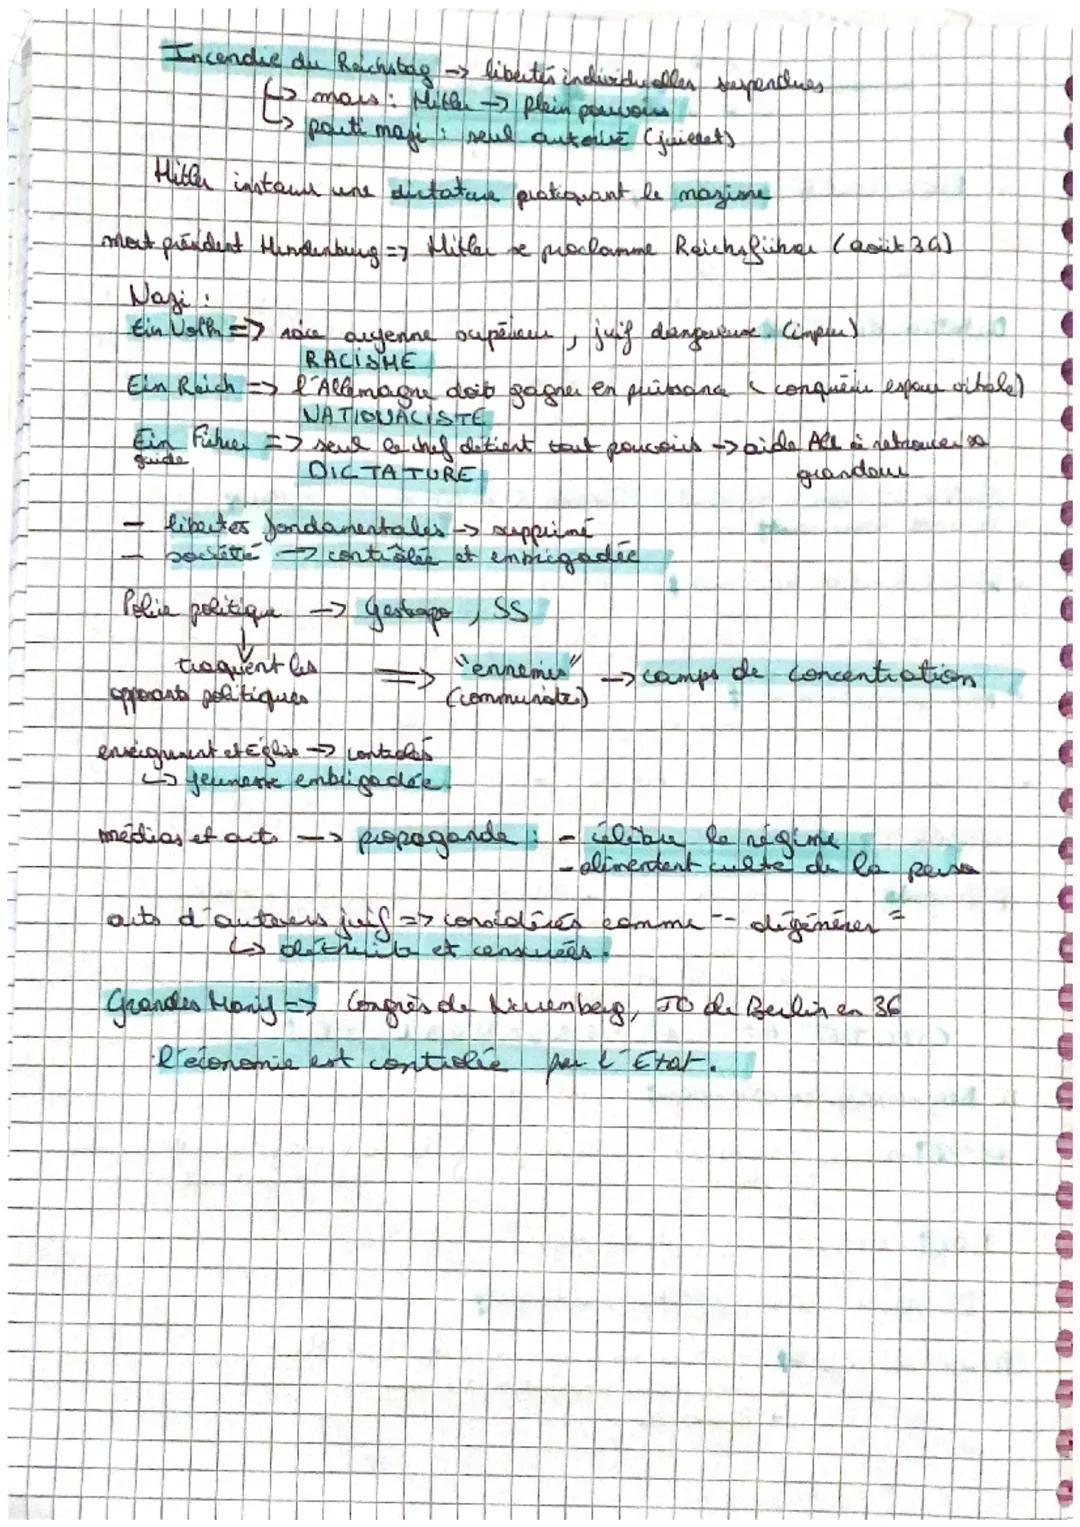 Incendie du Reichstag -> libertés individuelles suspendues
↳ mars : Hitler -> plein pouvoirs
↳ parti nazi : seul autorisé (juillet)
Hitler instaure une dictature pratiquant le nazisme
mort président Hindenburg => Hitler se proclamme Reichsführer (août 34)
Nazi :
Ein Volk => race aryenne supérieur, juif dangereux (impur)
RACISME
Ein Reich => l'Allemagne doit gagner en puissance (conquérir espace vitale)
NATIONALISTE
Ein Führer => seul le chef détient tout pouvoirs -> aide All à retrouver sa
guide grandeur
DICTATURE
- libertés fondamentales -> supprimé
- société -> contrôlée et embrigadée
Police politique -> Gestapo, SS
↓
traquent les => "ennemies" -> camps de concentration
opposants politiques (communistes)
enseignement et Eglise -> contrôlés
↳ jeunesse embrigadée
médias et arts -> propagande : - célèbre le régime
- alimentent culte de la perso
arts d'auteurs juif => considérés comme "dégénérer"
↳ détruits et censurés.
Grandes Manif => Congrès de Nuremberg, JO de Berlin en 36
l'économie est contrôlée par l'Etat.